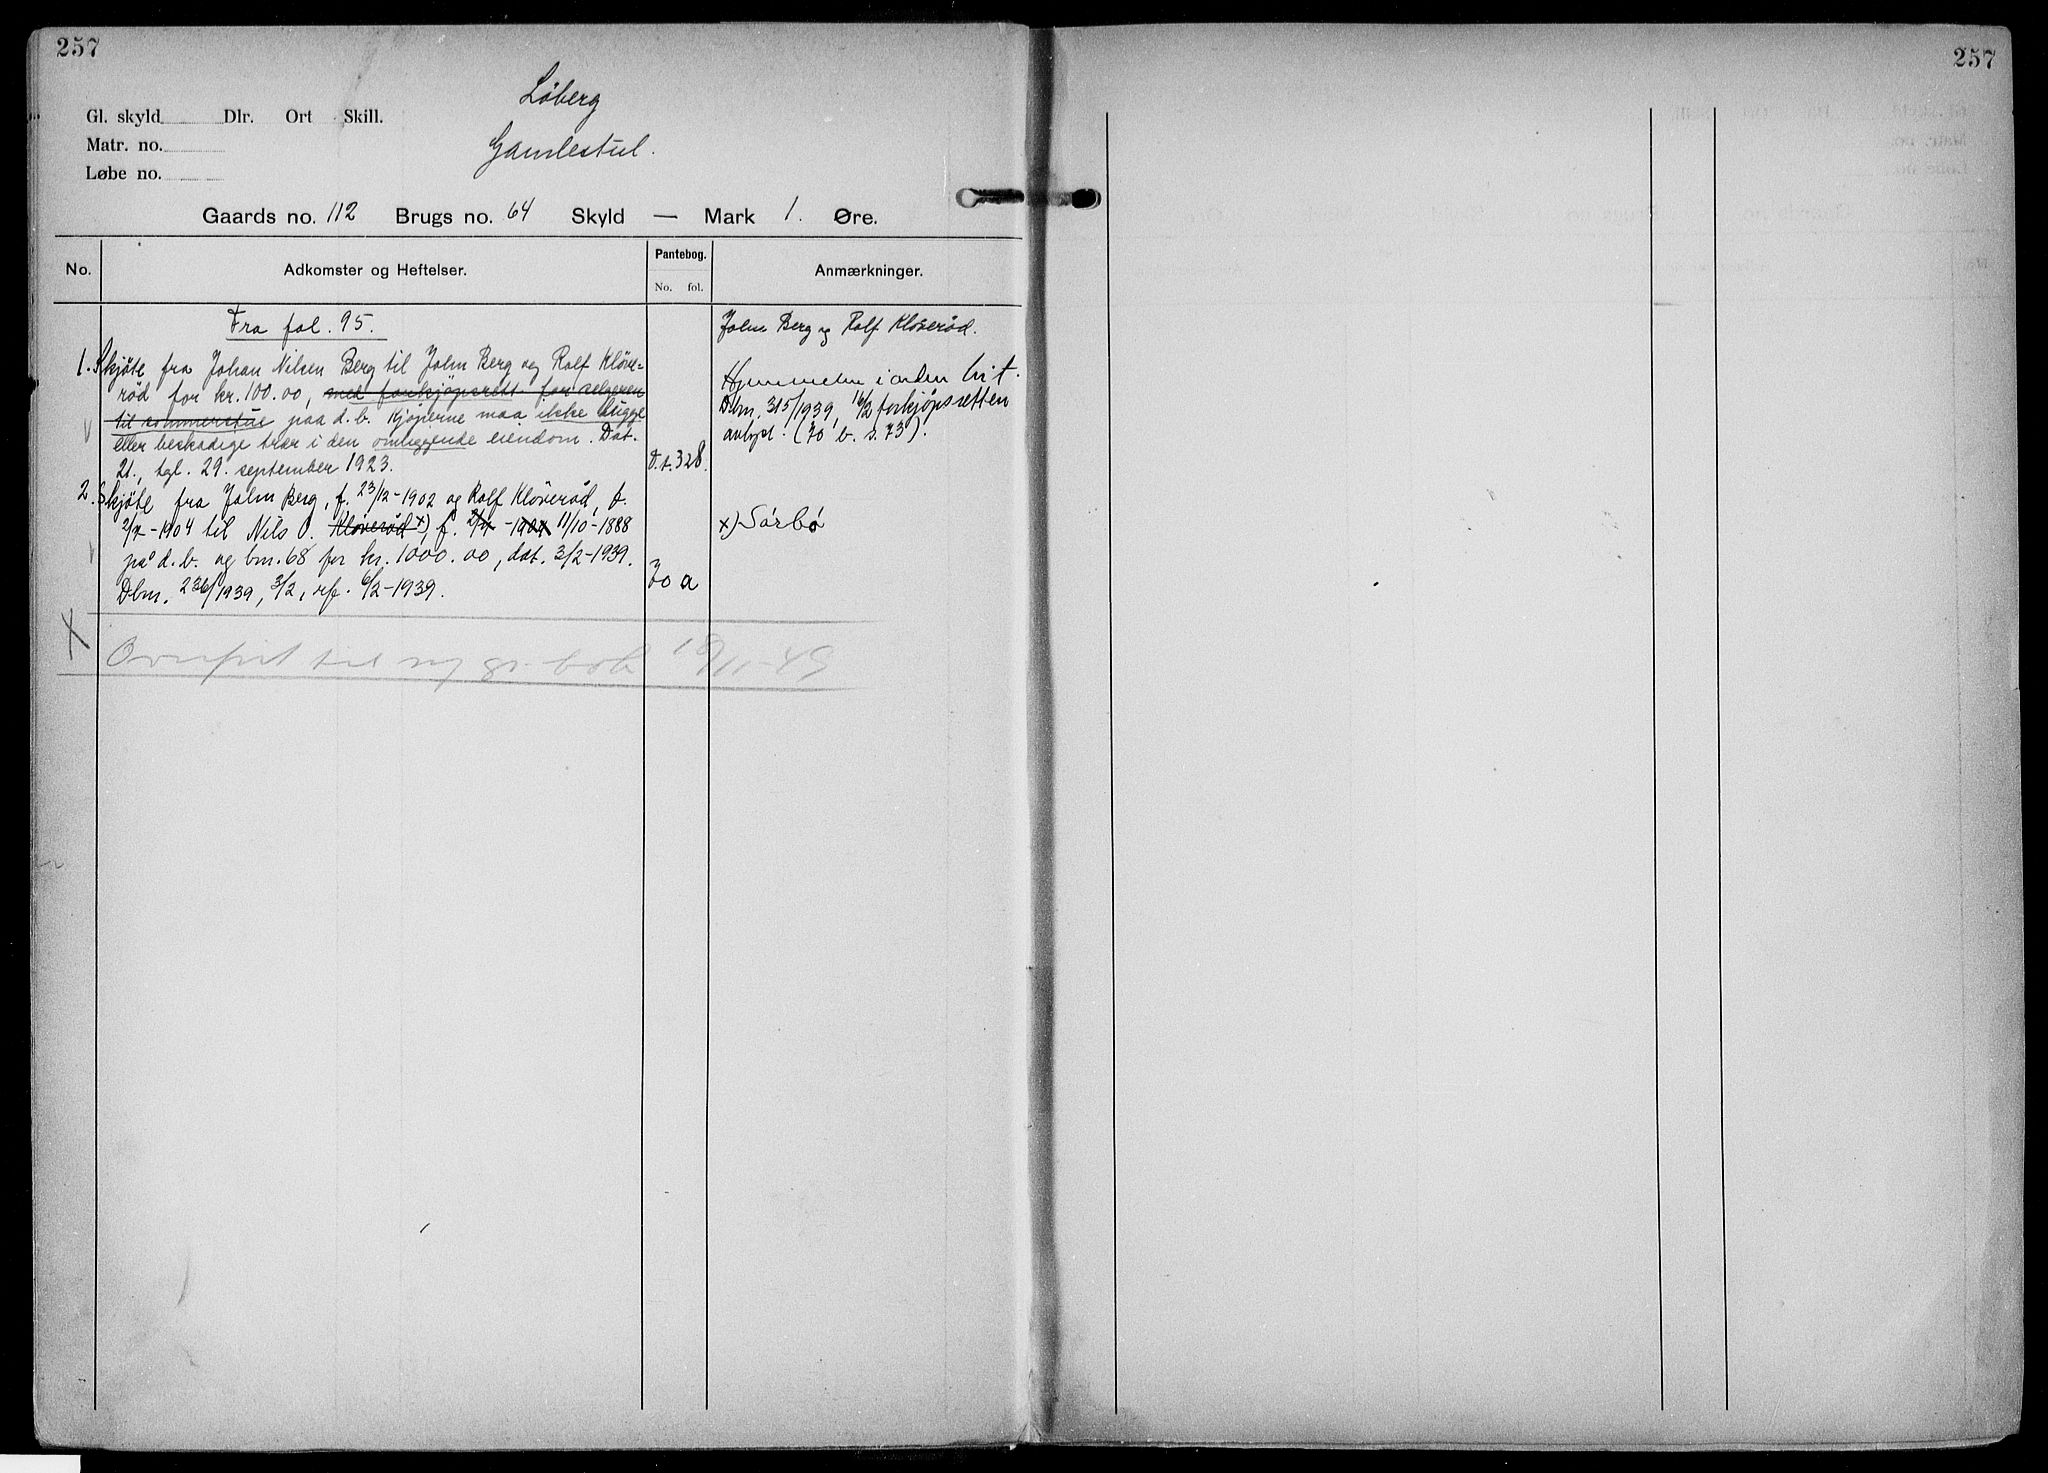 257
257
Løberg
Gl. skyld Dlr. Ort Skill.
Gamlestul.
Matr. no.
Løbe no.
Gaards no. 112 Brugs no. 64 Skyld — Mark 1. Øre.
No. Adkomster og Heftelser. Pantebog. No. fol. Anmærkninger.
Fra fol. 95.
1. Skjøte fra Johan Nilsen Berg til John Berg og Rolf Kløve-
rød for kr. 100.00, med forkjøpsrett for selgeren
til sommerstue paa d. b. Kjøperne maa ikke hugge
eller beskadige trær i den omliggende eiendom. Dat.
21., tgl. 29. september 1923. D.t. 328.
2. Skjøte fra John Berg, f. 23/12-1902 og Rolf Kløverød, f.
2/7-1904 til Nils O. Kløverød x) f. 2/7-1904 11/10-1888
på d. b. og bnr. 68 for kr. 1000.00, dat. 3/2-1939.
Dbnr. 236/1939, 3/2, ref. 6/2-1939. 70 a
Overført til ny gr. bok 19/11-49
John Berg og Rolf Kløverød.
Hjemmelen i orden hit.
Dbnr. 315/1939, 16/2 forkjøpsretten
avlyst. (70 b. s. 73).
x) Sørbø
x